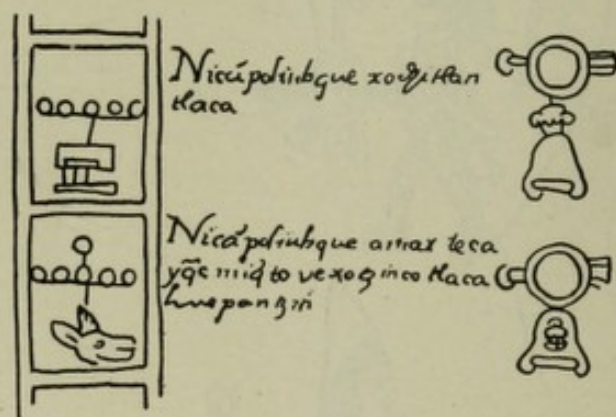 Nicā poliuhque xochitlan
tlaca
Nicā poliuhque amax teca
yq̄c miq̄to vexoçinco tlaca
huepançin